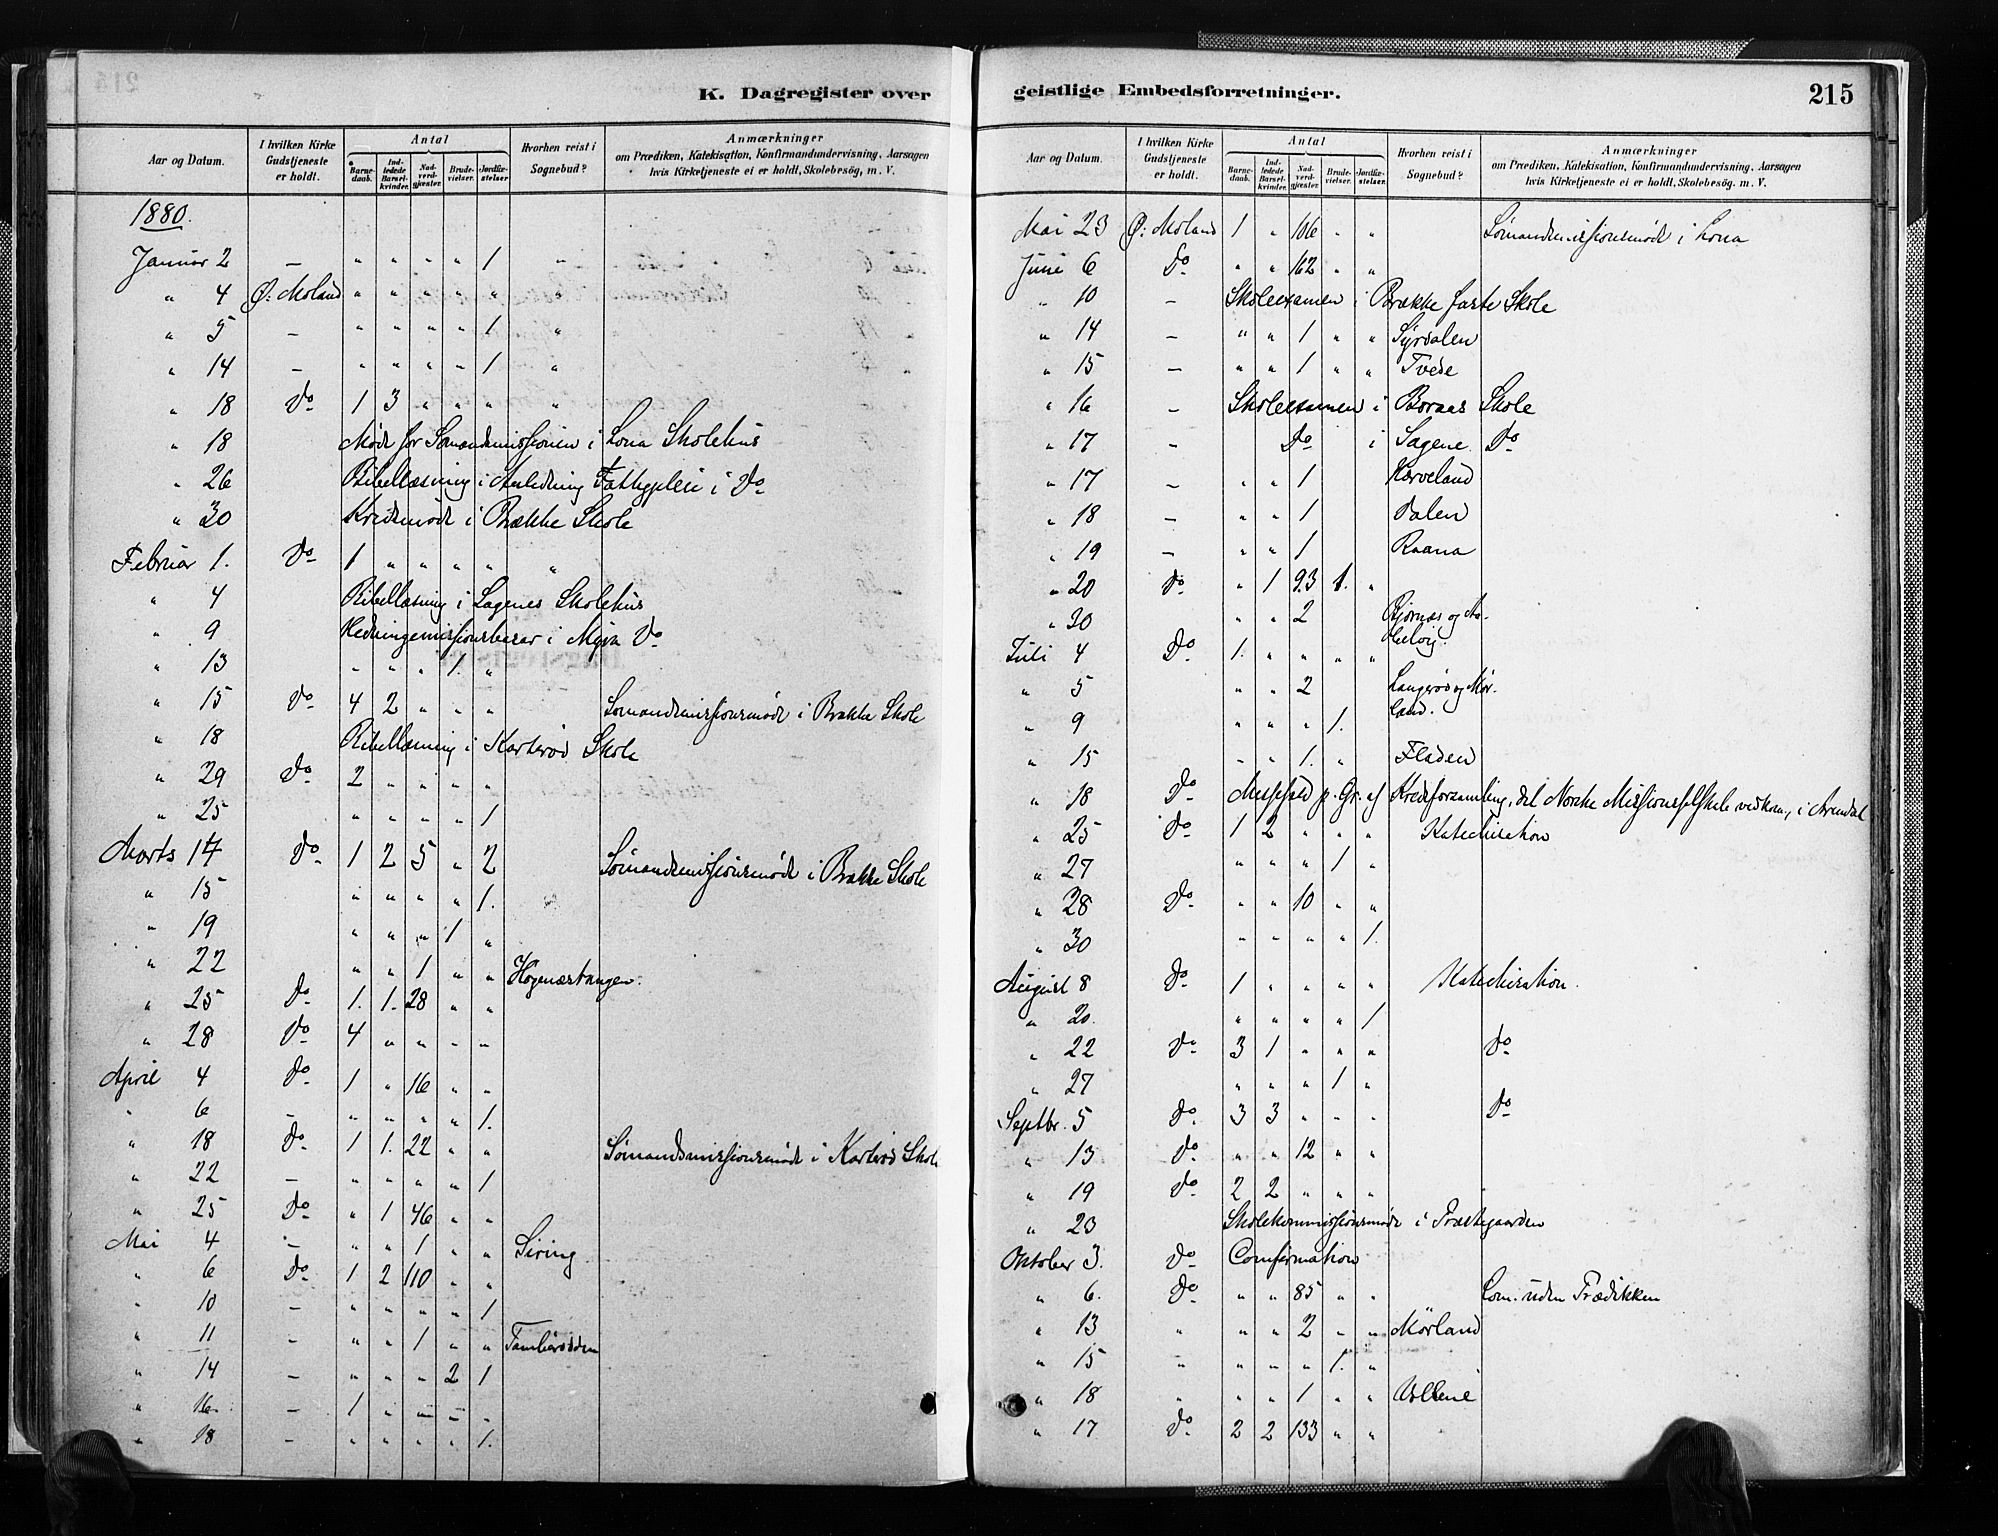 K. Dagregister over
Aar og Datum.
I hvilken Kirke Gudstjeneste er holdt.
Antal
Barnedaab.
Indledede Barselkvinder.
Nadverdgjæster.
Brudevielser.
Jordfæstelser.
Hvorhen reist i Sognebud?
Anmærkninger
om Prædiken, Katekisation, Konfirmandundervisning, Aarsagen
hvis Kirketjeneste ei er holdt, Skolebesøg, m. V.
1880.
Januar 2 — " " " " 1 "
" 4 Ø: Moland " " " " " "
" 5 — " " " " 1 "
" 14 — " " " " 1 "
" 18 Do 1 3 " " " "
" 18 Møde for Sømandsmissionen i Lona Skolehus
" 26 Bibellæsning i Anledning Fattigpleie i Do
" 30 Kredsmøde i Brække Skole
Februar 1. Do 1 " " " " "
" 4 Bibellæsning i Sagenes Skolehus
" 9 Hedningemissionsbasar i Myra Do
" 13 " " " 1. "
" 15 Do 4 2 " " " Sømandsmissionsmøde i Brække Skole
" 18 Bibellæsning i Karterød Skole
" 29 Do 2 " " " "
" 25 " " " " 1
Marts 14 Do 1 2 5 " 2 Sømandsmissionsmøde i Brække Skole
" 15 " " " " 1.
" 19 " " " 1 "
" 22 " " 1 " " Høgenæstangen.
" 25 Do 1. 1. 28 " "
" 28 Do 4 " " " "
April 4 Do 1 " 16 " "
" 6 — " " " " 1.
" 18 Do 1 1. 22 " " Sømandsmissionsmøde i Karterød Skole
" 22 — " " " " 1
" 25 Do " 1 46 " "
Mai 4 — " " 1 " " Siring
" 6 Do 1 2 110 " "
" 10 — " " " " 1
" 11 — " " 1 " "
" 14 — " " " 2 1
" 16 — 1 " " " "
" 18 — " " " " 1.
geistlige Embedsforretninger.
215
Aar og Datum.
I hvilken Kirke Gudstjeneste er holdt.
Antal
Barnedaab.
Indledede Barselkvinder.
Nadverdgjæster.
Brudevielser.
Jordfæstelser.
Hvorhen reist i Sognebud?
Anmærkninger
om Prædiken, Katekisation, Konfirmandundervisning, Aarsagen
hvis Kirketjeneste ei er holdt, Skolebesøg, m. V.
Mai 23 Ø: Moland 1 " 106 " " Sømandsmissionsmøde i Lona
Juni 6 Do " " 62 " "
" 10 — Skoleexamen i Brække faste Skole
" 14 — " " 1 " " Syrdalen
" 15 — " " 1 " " Tvede
" 16 — Skoleexamen i Boraas Skole
" 17 — Do i Sagene Do
" 17 — " " 1 Hørveland
" 18 — " " 1 Dalen
" 19 — " " 1 Raana
" 20 Do " 1 93 1. "
" 30 " " 2 Bjørnæs og
Juli 4 Do 1. " " " "
" 5 " " 2 Langerød og Mør-
land.
" 9 " " " 1.
" 15 " " 1. " Fladen
" 18 Do Messefald p. Gr. af Kredsforsamling, det Norske Missionsselskab vedkom., i Arendal
" 25 Do 1 2 " " " Katechisation
" 27 " " " 1 "
" 28 Do " " 10 " "
" 30 " " " " 1.
August 8 Do 1 " " " " Katechisation.
" 20. " " " " 1
" 22 Do 3 1 " " " Do
" 27 " " " 1 "
Septbr. 5 Do 3 3 " " " Do
" 13 Do " " 12 " "
" 19 Do 2 2 " " "
" 23 Skolekommissionsmøde i Præstegaarden
Oktober 3. Do Confirmation
" 6. Do " " 85 " " Com. uden Prædikken
" 13 " " " 2 " " Mørland
" 15 " " " " 1. "
" 18 " " " 1 " "
" 17 Do 2 2 133 " "